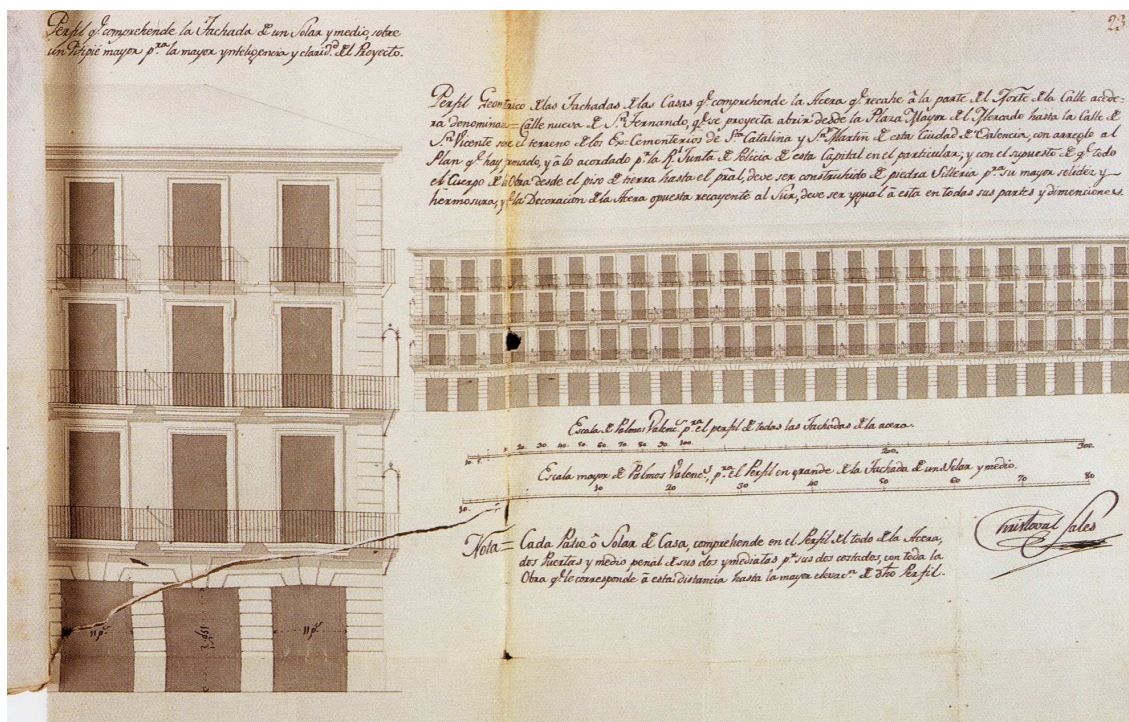 Perfil q.e comprehende la Fachada de un Solar y medio, sobre
un Pitipié mayor p.ra la mayor ynteligencia y clarid.d del Proyecto.
23
Perfil Geomtrico de las Fachadas de las Casas q.e comprehende la Acera q.e recahe â la parte del Norte de la Calle acede-
ra denominas = Calle nueva de S.n Fernando, q.e se proyecta abrir desde la Plaza Mayor del Mercado hasta la Calle de
S.n Vicente sre el terreno de los Ex-Cementerios de S.ta Catalina y S.n Martin de esta Ciudad de Valencia, con arreglo al
Plan q.e hay, y â lo acordado p.r la R.l Junta de Policia de esta Capital en el particular; y con el supuesto de q.e todo
el Cuerpo de la Obra desde el piso de tierra hasta el pral, deve ser construhido de piedra Silleria p.ra su mayor solidez y
hermosura, y q.e la Decoracion de la Acera opuesta recayente al Sur, deve ser ygual â esta en todas sus partes y dimenciones.
Escala de Palmos Valenc.s p.ra el perfil de todas las Fachadas de la acera.
10. 20. 30. 40. 50. 60. 70. 80. 90. 100. 200. 300.
Escala mayor de Palmos Valenc.s, p.ra el Perfil en grande de la Fachada de un Solar y medio.
10. 10 20 30 40 50 60 70 80
Christoval Sales
Nota = Cada Patio ô Solar de Casa, comprehende en el Perfil del todo de la Acera,
dos Puertas y medio penal de sus dos ymediatas p.r sus dos costados, con toda la
Obra q.e le corresponde â esta distancia hasta la mayor elevac.n de dho Perfil.
11 p.s 11 p.s